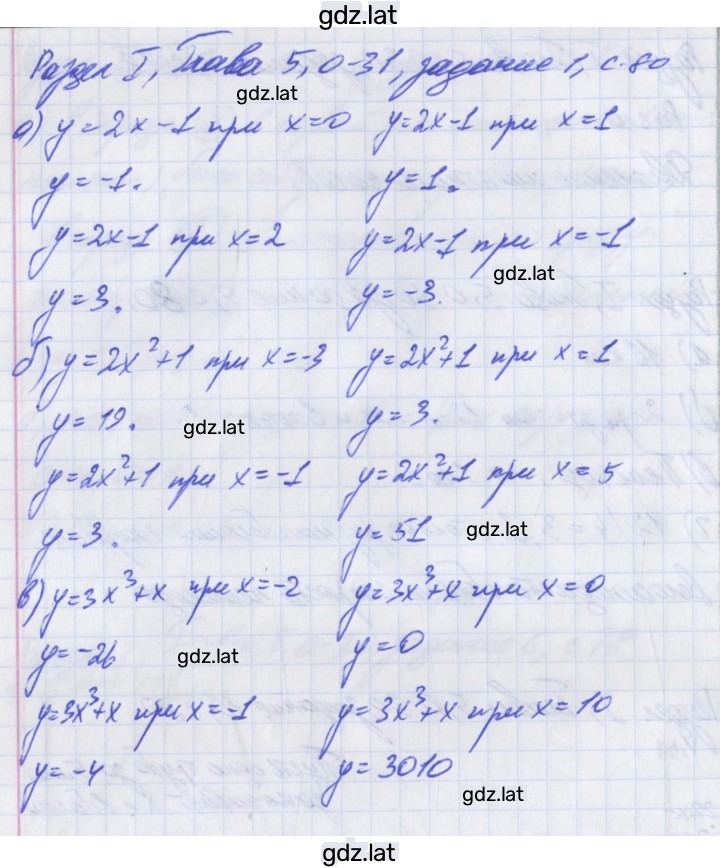 gdz.lat
Раздел I, Глава 5, О-31, задание 1, с.80
gdz.lat
а) y=2x-1 при x=0 y=2x-1 при x=1
y=-1. y=1.
y=2x-1 при x=2 y=2x-1 при x=-1
gdz.lat
y=3. y=-3.
б) y=2x²+1 при x=-3 y=2x²+1 при x=1
y=19. y=3.
gdz.lat
y=2x²+1 при x=-1 y=2x²+1 при x=5
y=3. y=51
gdz.lat
в) y=3x³+x при x=-2 y=3x³+x при x=0
y=-26 y=0
gdz.lat
y=3x³+x при x=-1 y=3x³+x при x=10
y=-4 y=3010
gdz.lat
gdz.lat